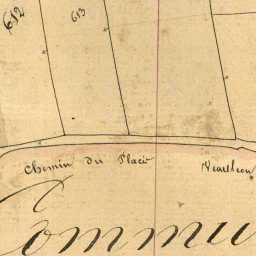 612
613
Chemin du Placis
Commu